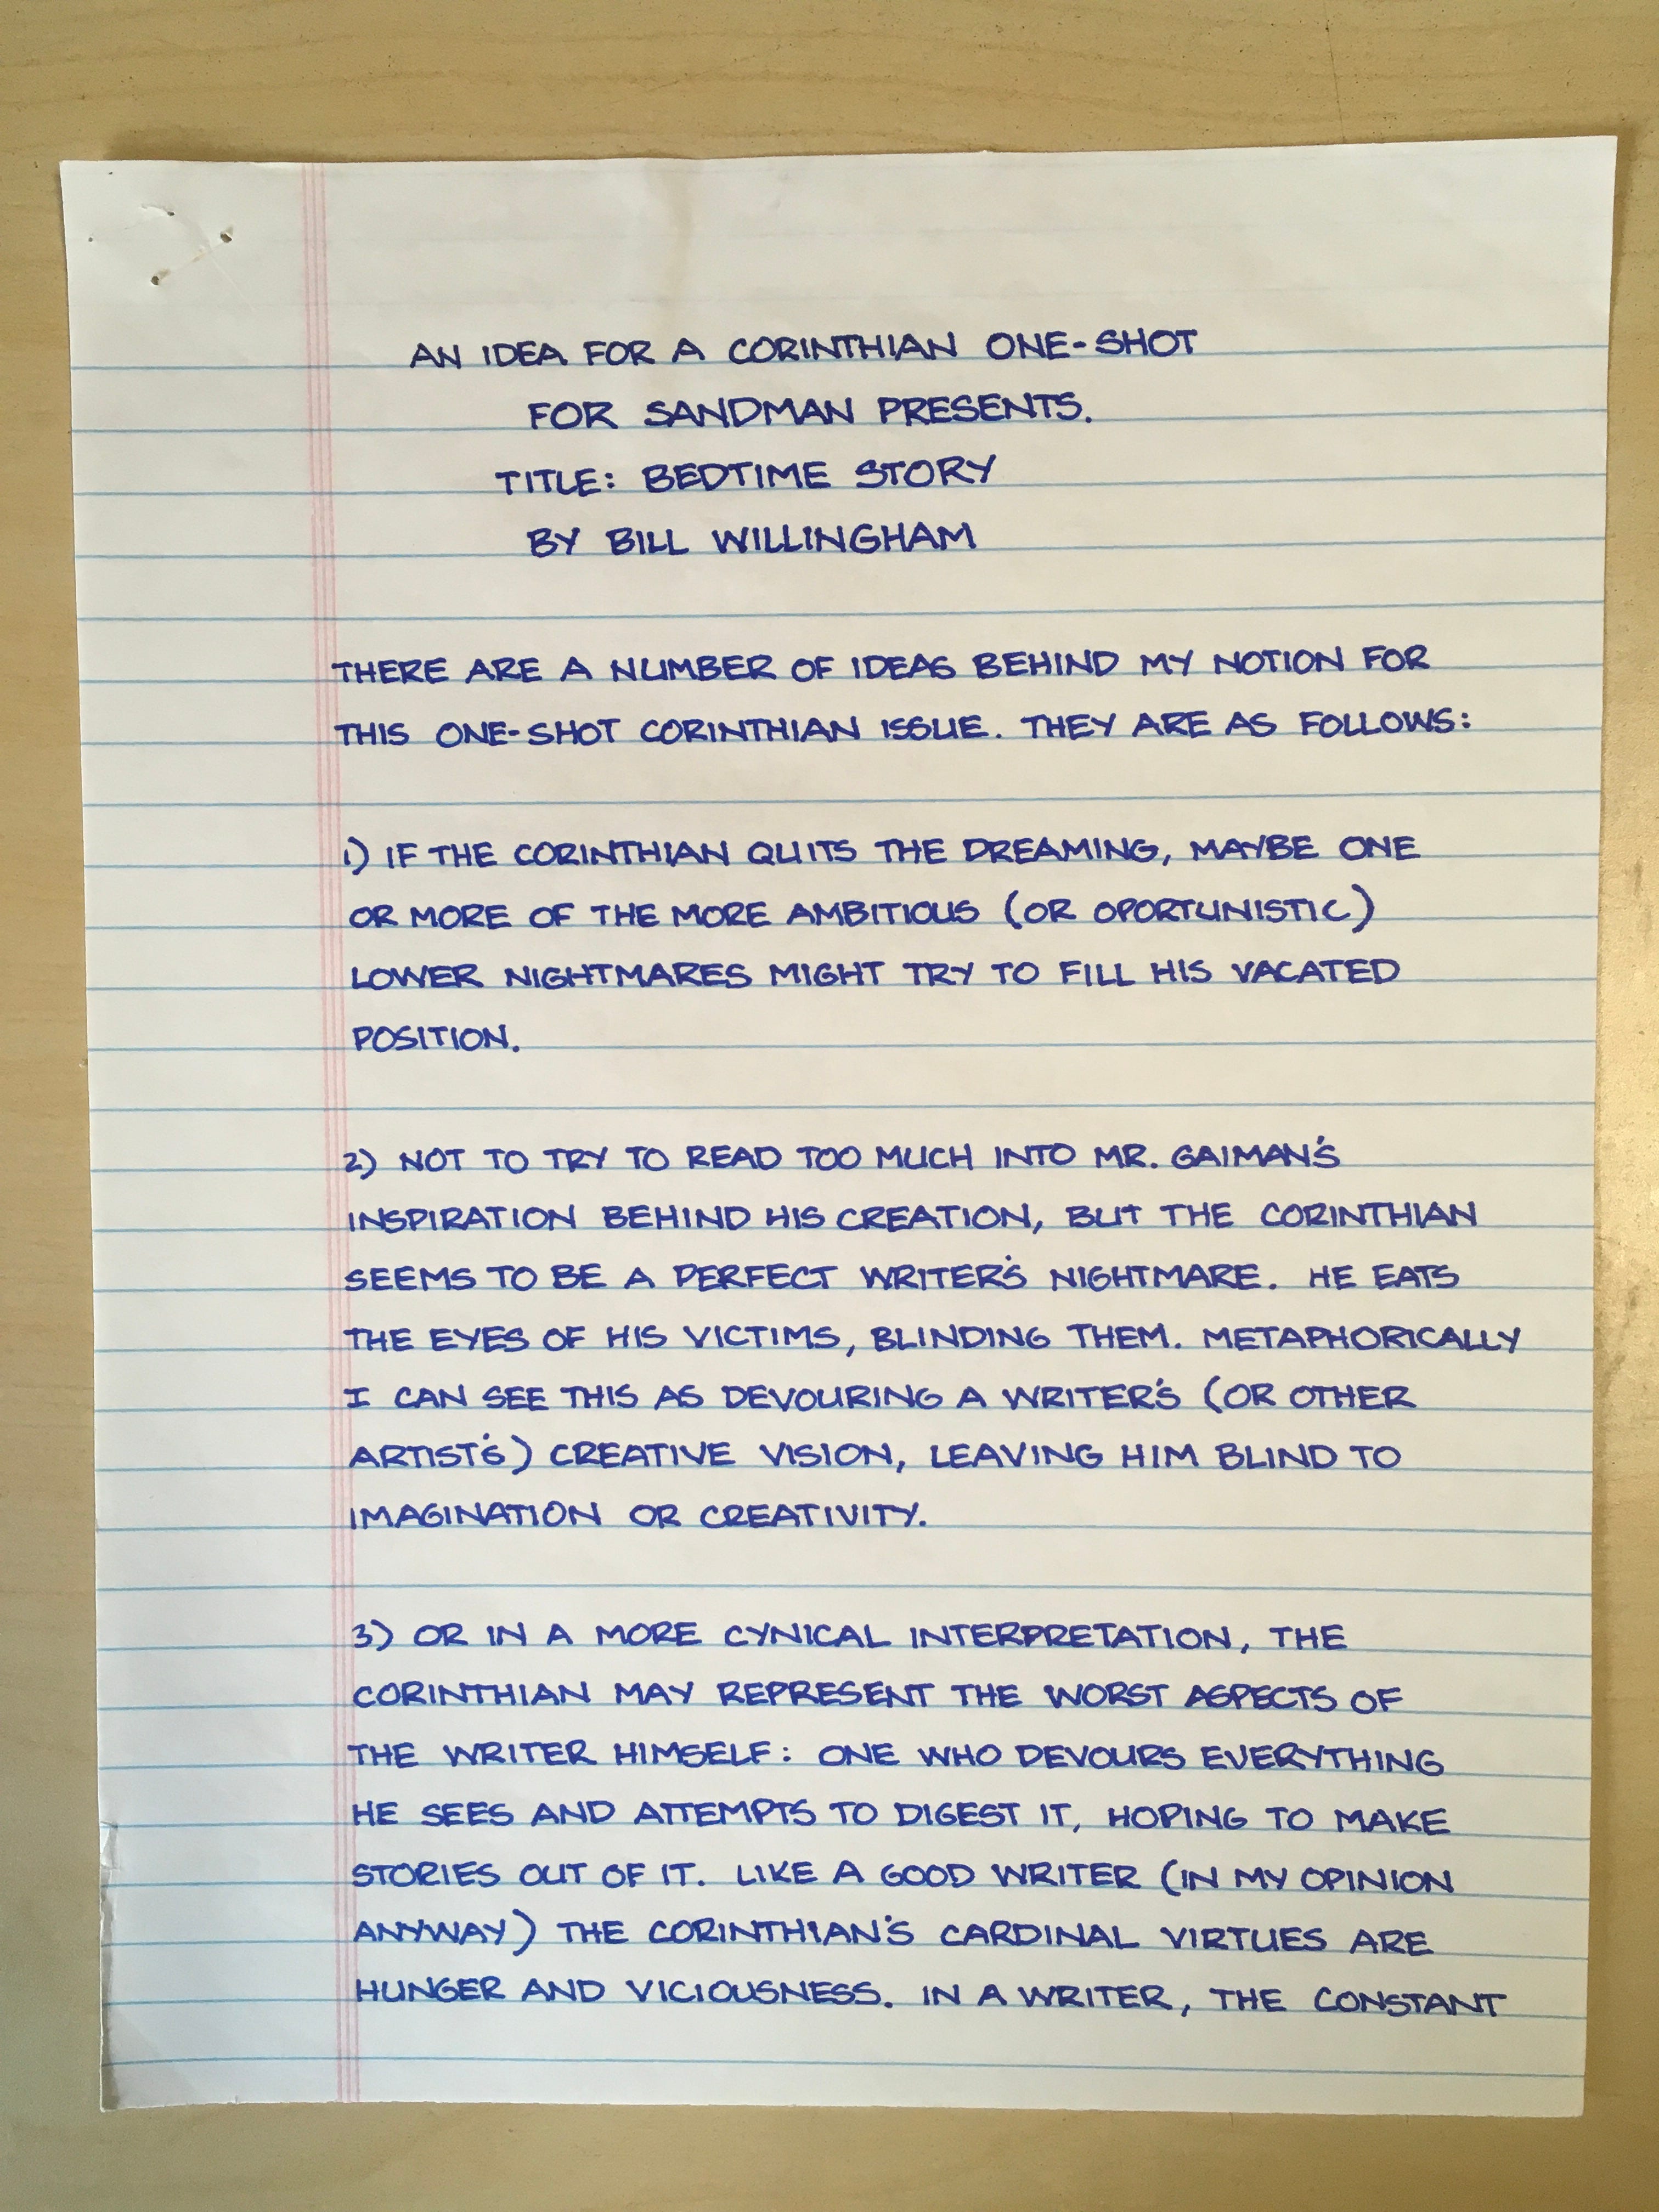 AN IDEA FOR A CORINTHIAN ONE-SHOT
FOR SANDMAN PRESENTS.
TITLE: BEDTIME STORY
BY BILL WILLINGHAM
THERE ARE A NUMBER OF IDEAS BEHIND MY NOTION FOR
THIS ONE-SHOT CORINTHIAN ISSUE. THEY ARE AS FOLLOWS:
1) IF THE CORINTHIAN QUITS THE DREAMING, MAYBE ONE
OR MORE OF THE MORE AMBITIOUS (OR OPORTUNISTIC)
LOWER NIGHTMARES MIGHT TRY TO FILL HIS VACATED
POSITION.
2) NOT TO TRY TO READ TOO MUCH INTO MR. GAIMAN'S
INSPIRATION BEHIND HIS CREATION, BUT THE CORINTHIAN
SEEMS TO BE A PERFECT WRITER'S NIGHTMARE. HE EATS
THE EYES OF HIS VICTIMS, BLINDING THEM. METAPHORICALLY
I CAN SEE THIS AS DEVOURING A WRITER'S (OR OTHER
ARTIST'S) CREATIVE VISION, LEAVING HIM BLIND TO
IMAGINATION OR CREATIVITY.
3) OR IN A MORE CYNICAL INTERPRETATION, THE
CORINTHIAN MAY REPRESENT THE WORST ASPECTS OF
THE WRITER HIMSELF: ONE WHO DEVOURS EVERYTHING
HE SEES AND ATTEMPTS TO DIGEST IT, HOPING TO MAKE
STORIES OUT OF IT. LIKE A GOOD WRITER (IN MY OPINION
ANYWAY) THE CORINTHIAN'S CARDINAL VIRTUES ARE
HUNGER AND VICIOUSNESS. IN A WRITER, THE CONSTANT